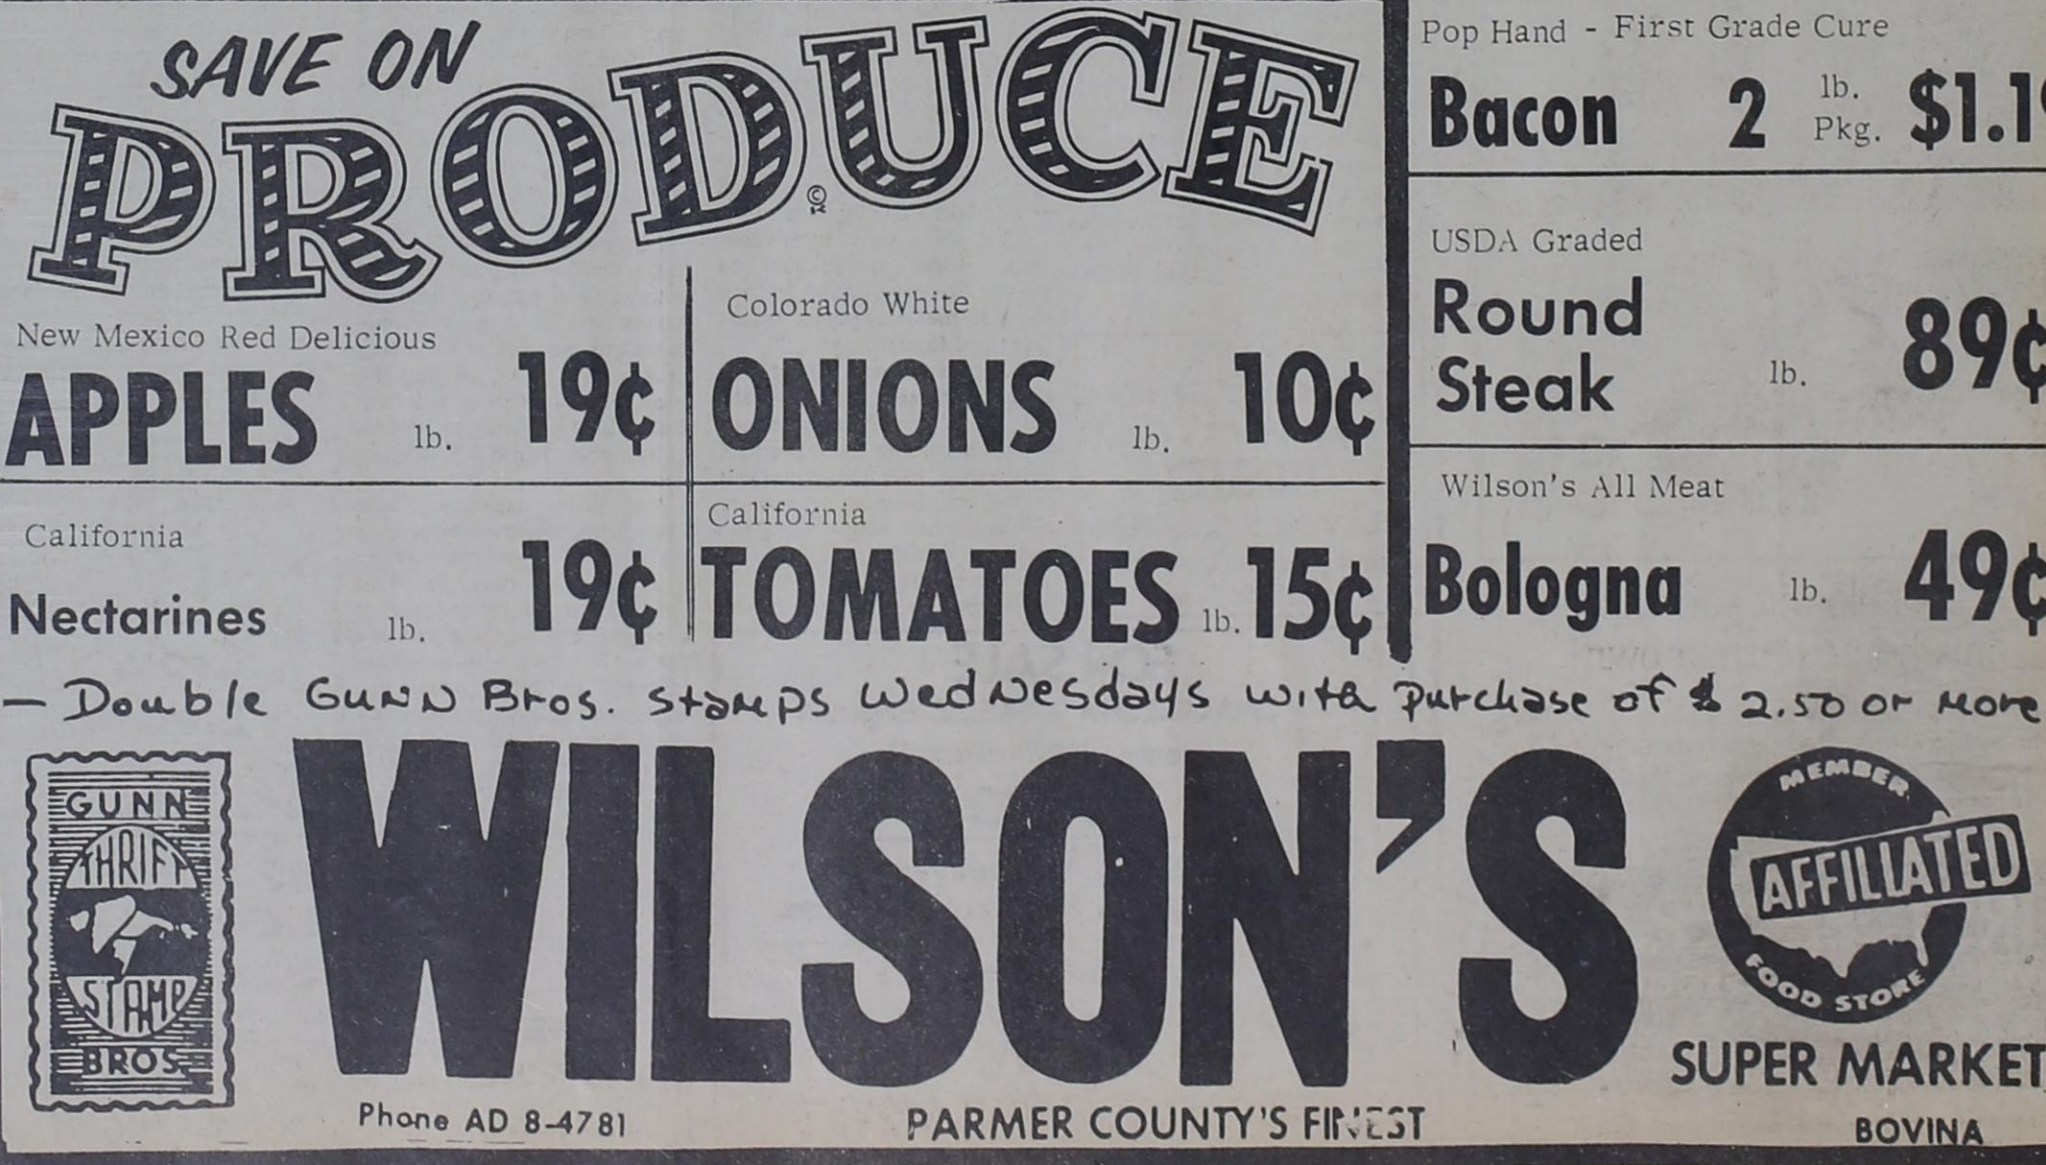 SAVE ON
PRODUCE
New Mexico Red Delicious
APPLES lb. 19¢
Colorado White
ONIONS lb. 10¢
California
Nectarines lb. 19¢
California
TOMATOES lb. 15¢
Pop Hand - First Grade Cure
Bacon 2 lb. Pkg.
USDA Graded
Round
Steak lb. 89¢
Wilson's All Meat
Bologna lb. 49¢
- Double Gunn Bros. stamps Wednesdays with purchase of $ 2.50 or more
GUNN
THRIFT
STAMP
BROS.
WILSON'S
MEMBER
AFFILIATED
FOOD STORE
SUPER MARKET
Phone AD 8-4781
PARMER COUNTY'S FINEST
BOVINA